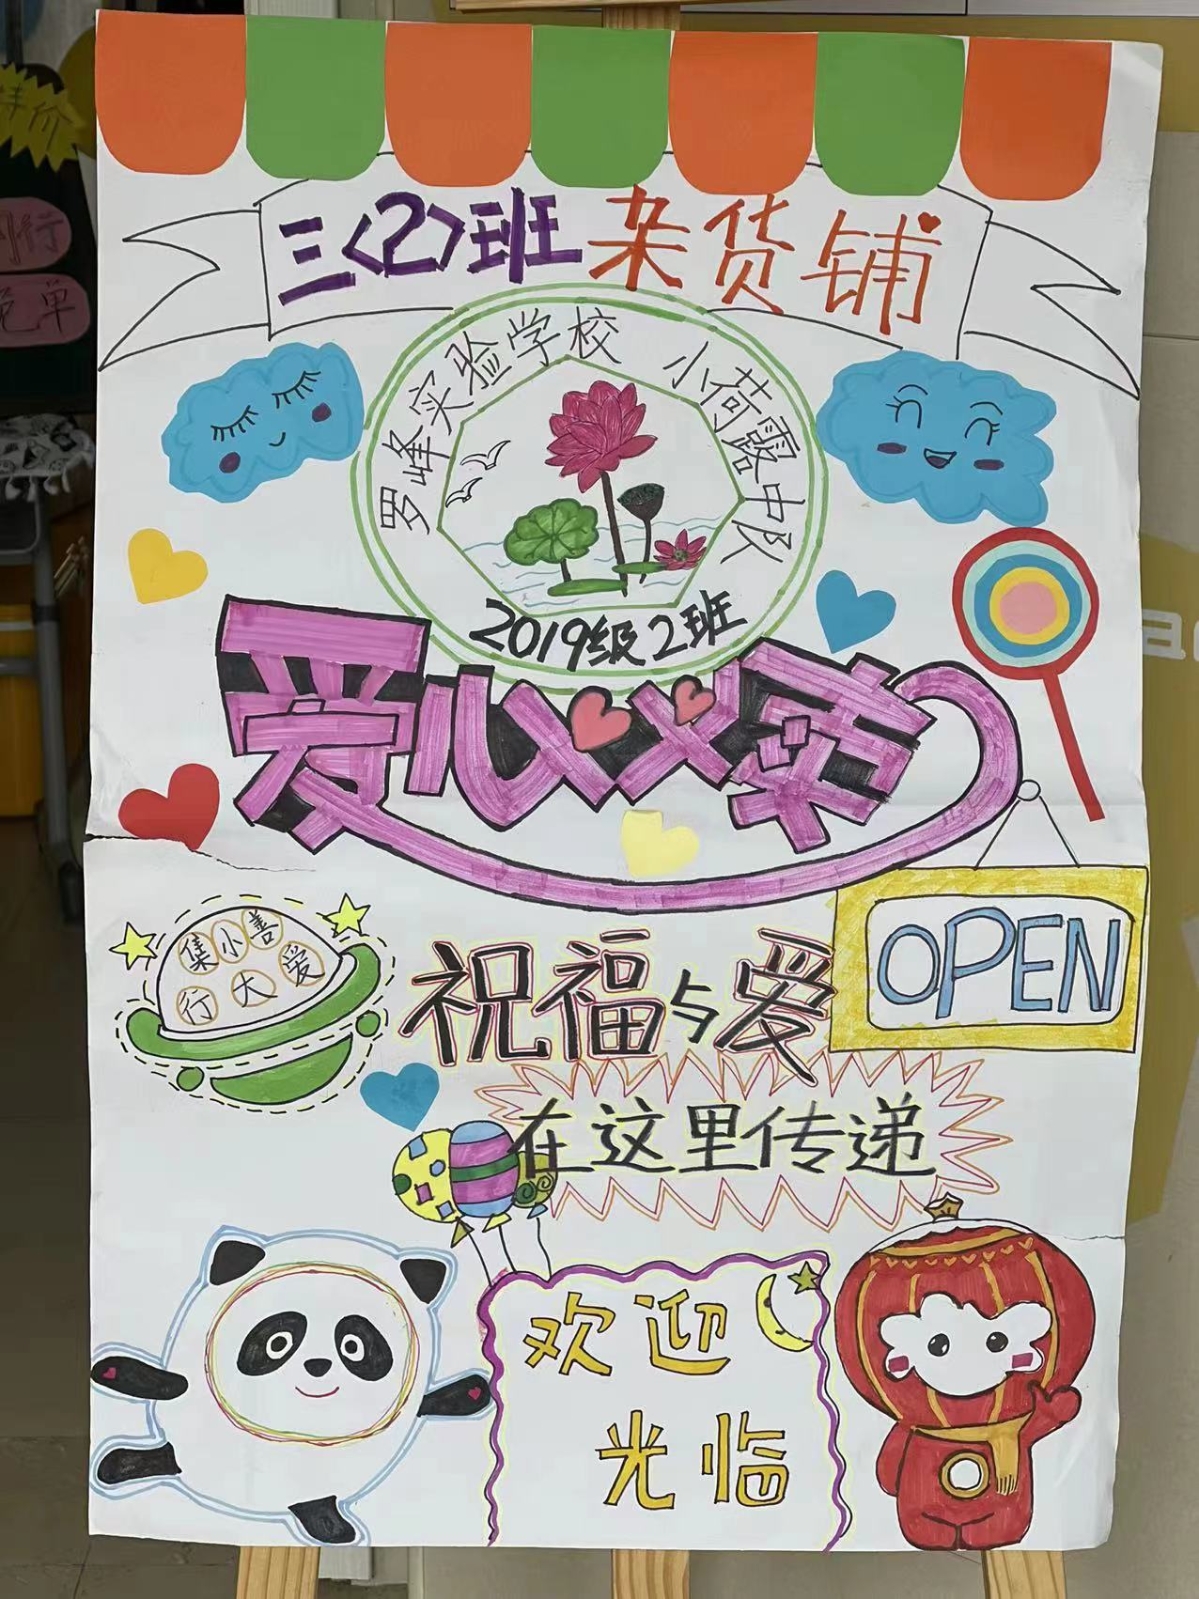 三(2)班杂货铺
罗峰实验学校 小荷露中队
2019级2班
爱心义卖
集小善
行大爱
祝福与爱
OPEN
在这里传递
欢迎
光临